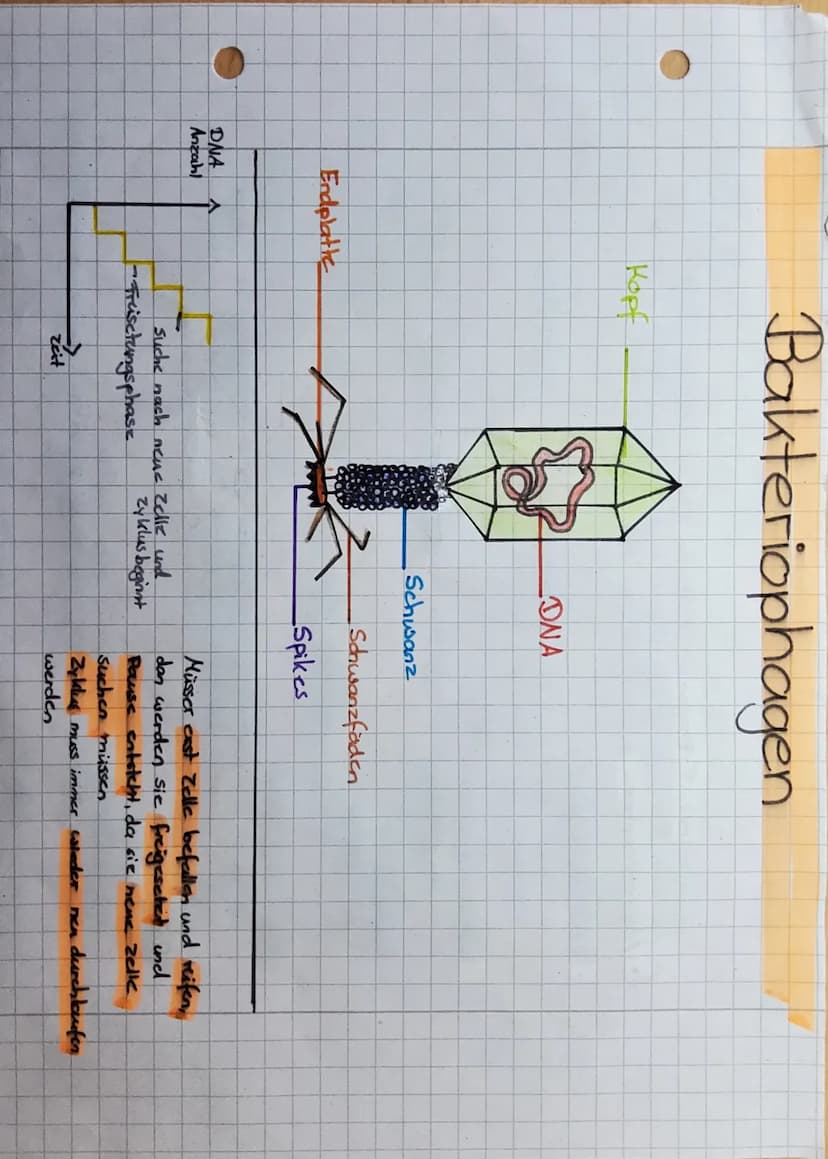 Bakteriophagen
Kopf
DNA
Schwanz
Schwanzfäden
Endplatte
Spikes
DNA
Anzahl
Suche nach neue Zelle und
Zyklus beginnt
Freisetzungsphase
Zeit
Müssen erst Zelle befallen und reifen,
dan werden sie freigesetzt und
Pause entsteht, da sie neue Zelle
suchen müssen
Zyklus muss immer wieder neu durchlaufen
werden